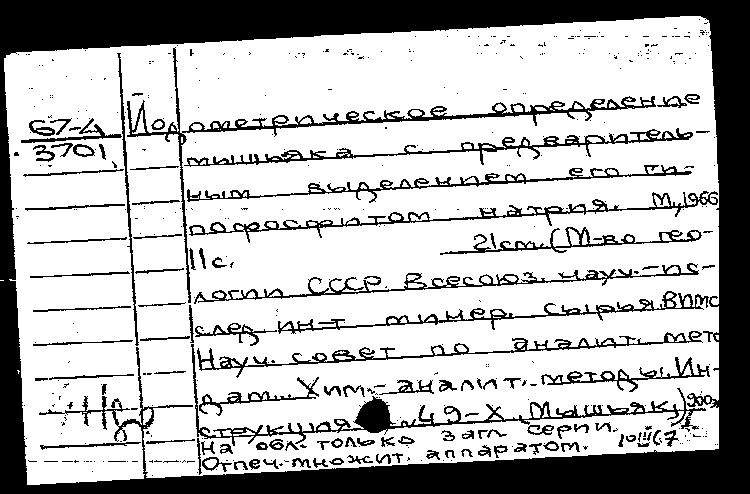 67-4
3701
Йодометрическое определение
мышьяка с предваритель-
ным выделением его ги-
пофосфитом натрия. М., 1966
11 с. 21 см. (М-во гео-
логии СССР. Всесоюз. науч.-ис-
след. ин-т минер. сырья. ВИМС
Науч. совет по аналит. мето
дам. Хим.-аналит. методы. Ин-
струкция № 49-Х. (Мышьяк))
На обл. только загл. серии.
Отпеч. множит. аппаратом. 10 III 67